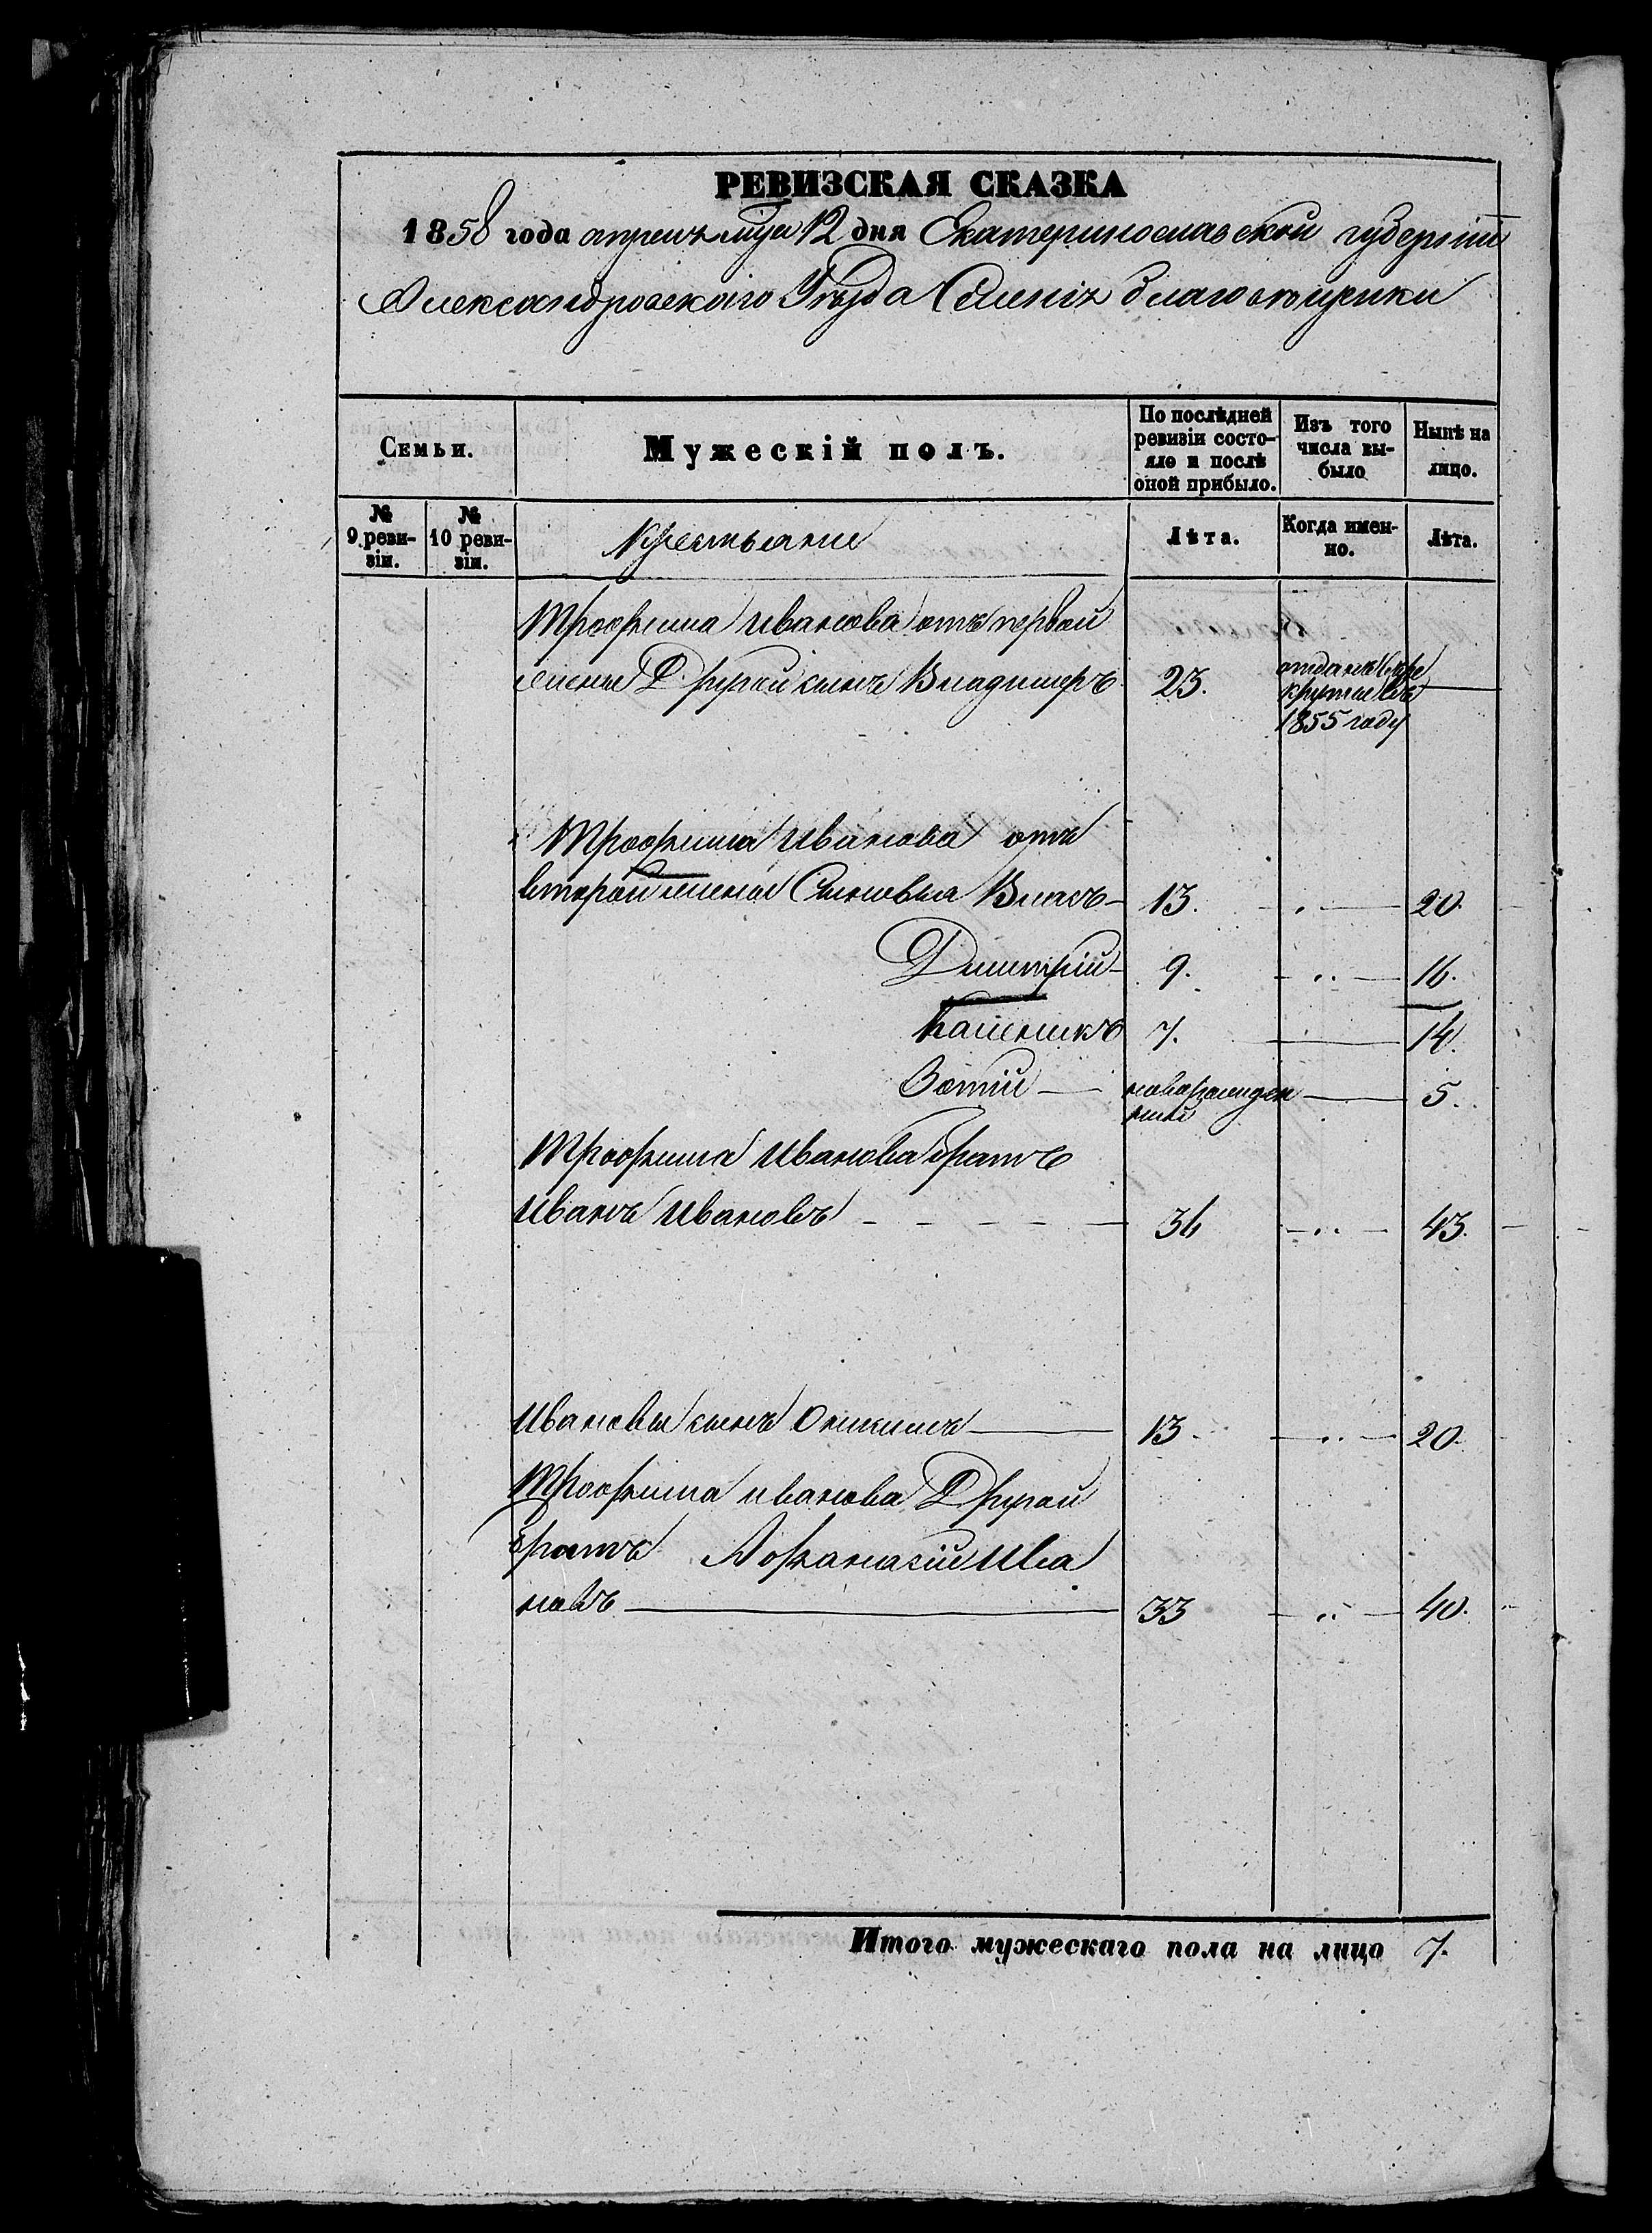 РЕВИЗСКАЯ СКАЗКА
1858 года апрель мца 12 дня Екатеринославской губерніи
Александровскаго Уѣзда Селенія
Семьи.
Мужескій полъ.
По послѣдней ревизіи состояло и послѣ оной прибыло.
Изъ того числа выбыло
Нынѣ на лицо.
№ 9 ревизіи.
№ 10 ревизіи.
Крестьяне
Лѣта.
Когда именно.
Лѣта.
Трофима Иванова отъ первой
жены Другой сынъ Владимеръ 23. отданъ въ рекруты въ 1855 году
Трофима Иванова отъ
второй жены Сыновья Власъ 13. 20.
Димитрій 9. 16.
Калиникъ 7. 14.
Зотій новорожденный 5.
Трофима Иванова братъ
Иванъ Ивановъ 36 43.
Ивановы сынъ Онисимъ 13 20.
Трофима иванова Другой
братъ Афанасій Ива
новъ 33 40.
Итого мужескаго пола на лицо 7.